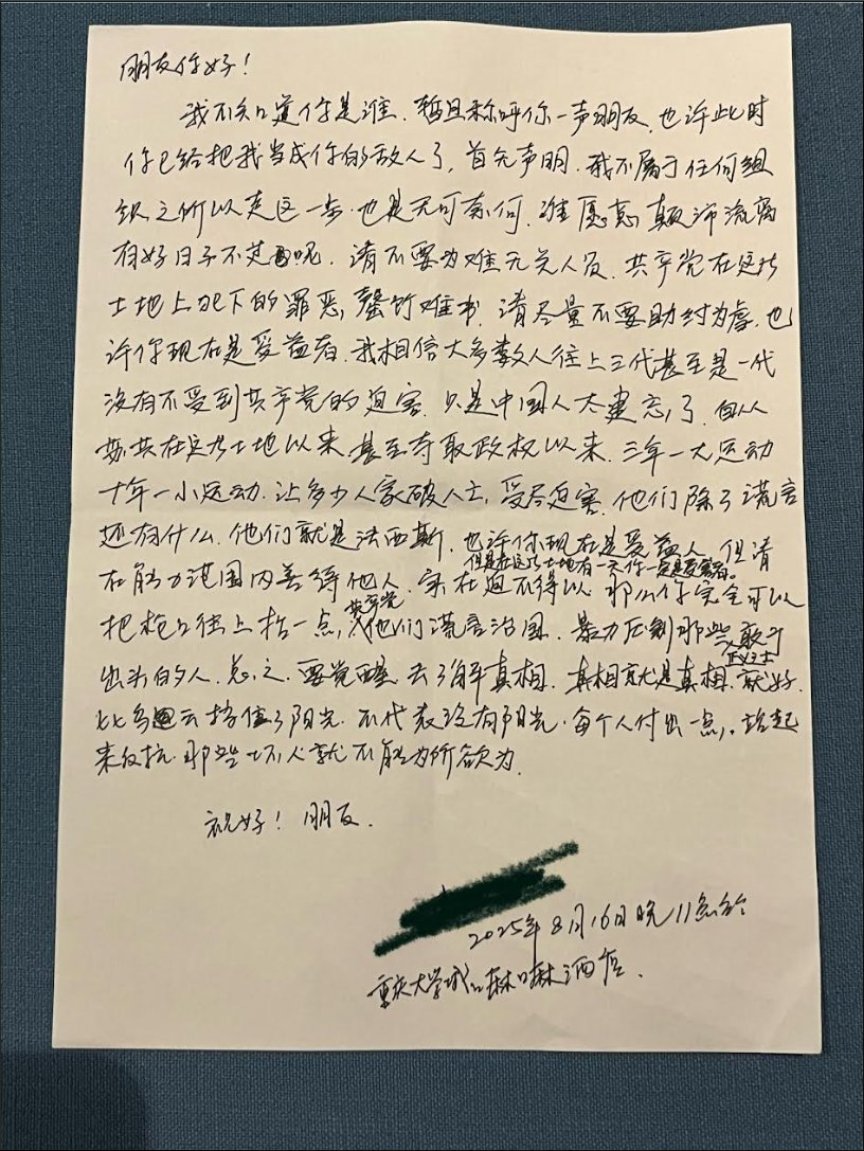 朋友你好!
我不知道你是谁.暂且称呼你一声朋友,也许此时
你已给把我当成你的敌人了,首先声明.我不属于任何组
织之所以走这一步.也是无可奈何.谁愿意颠沛流离
有好日子不过呢.请不要为难无关人员.共产党在这片
土地上犯下的罪恶,罄竹难书.请尽量不要助纣为虐.也
许你现在是受益者.我相信大多数人往上三代甚至是一代
没有不受到共产党的迫害.只是中国人太健忘了.自从
共在这片土地以来.甚至夺取政权以来.三年一大运动
十年一小运动.让多少人家破人亡,受尽迫害.他们除了谎言
还有什么.他们就是法西斯.也许你现在是受益人.但请
但是在这片土地有一天你一定是受害者。
在能力范围内善待他人.实在迫不得以.那么你完全可以
共产党
把枪口往上抬一点,他们谎言治国.暴力压制那些敢于
正义之士
出头的人.总之.要觉醒.去了解真相.真相就是真相.就好
比乌云挡住了阳光.不代表没有阳光.每个人付出一点,.站起
来反抗.那些坏人就不能为所欲为.
祝好!朋友.
2025年8月16日晚11点
重庆大学城口麻口麻酒店.